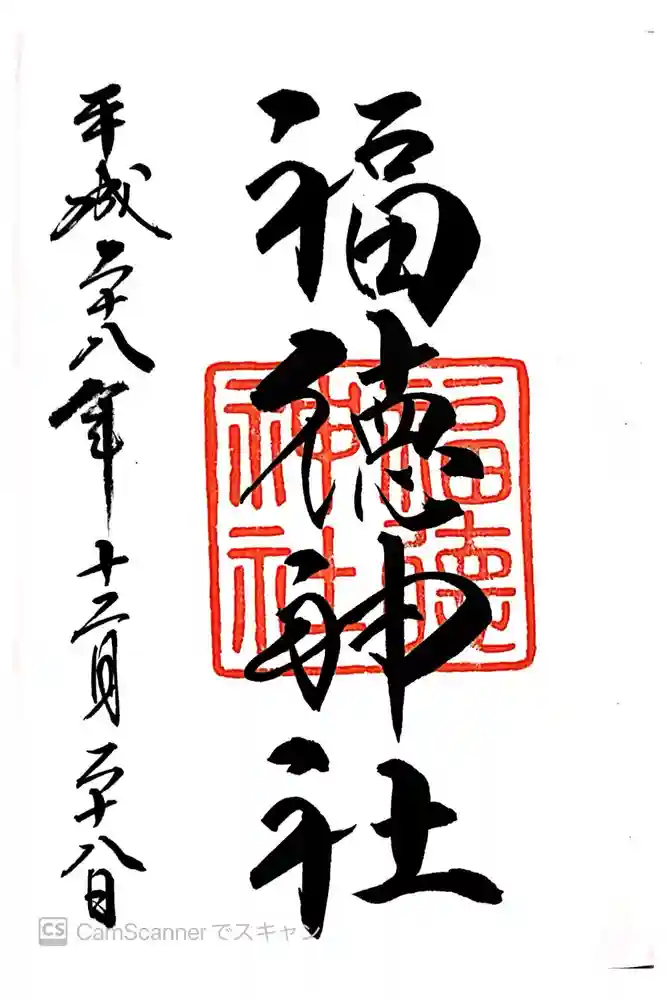 福徳神社
福徳
神社
平成二十八年十二月二十八日
CS CamScannerでスキャン